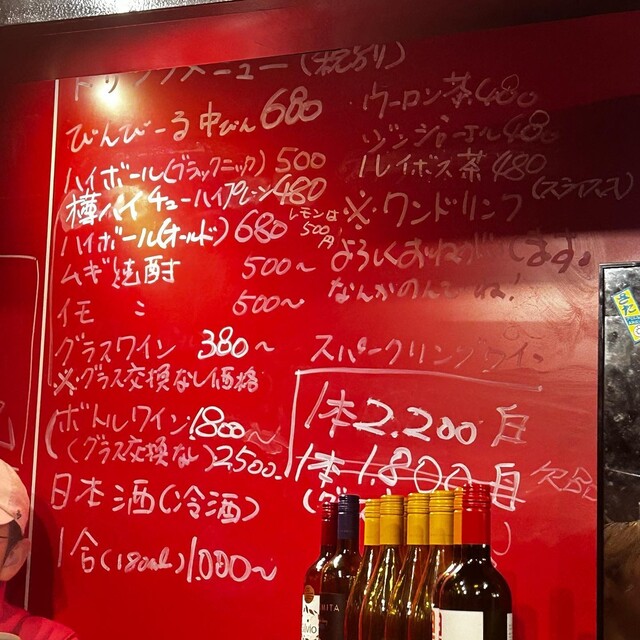 ドリンクメニュー(税込り)
びんびーる中びん 680
ハイボール(ブラックニッカ) 500
樽ハイ チューハイプレーン480
レモンは
500
円
ハイボール(オールド) 680
ムギ焼酎 500〜
イモ 〃 500〜
グラスワイン 380〜
※グラス交換なし価格
ボトルワイン1.800〜
(グラス交換なし)2.500
日本酒(冷酒)
1合(180ml)1,000〜
ウーロン茶480
ジンジャーエール480
ルイボス茶 480
※ワンドリンク
よろしくおねがいします。
なんかのんでね!
スパークリングワイン
1本2.200白
1本1.800白 欠品
MITA